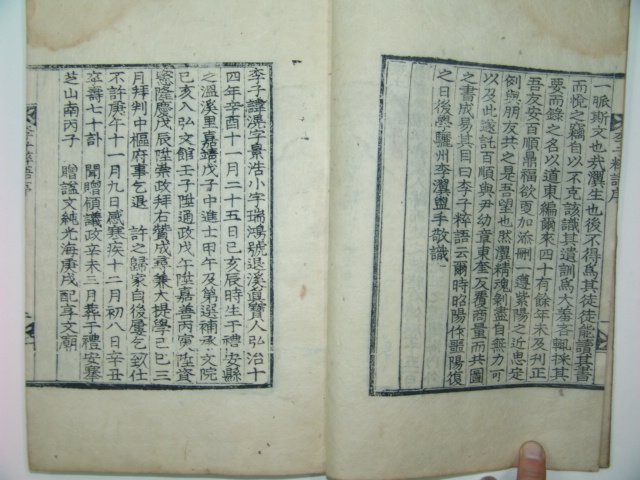 一脈斯文也我瀷生也後不得爲其徒徒能讀其書
而悅之竊自以不克該識其遺訓爲大羞吝輒採其
要而錄之名以道東編爾來四十有餘年未及刋正
吾友安百順鼎福欲更加添刪一遵紫陽之近思定
例與朋友共之是吾望也然瀷精魂剝盡自無力可
以及此遂託百順與尹幼章東奎反覆商量而共圖
之書成易其目曰李子粹語云爾時昭陽作噩陽復
之日後學驪州李瀷盥手敬識
李子粹語序
李子諱滉字景浩小字瑞鴻號退溪眞寶人弘治十
四年辛酉十一月二十五日己亥辰時生于禮安縣
之溫溪里嘉靖戊子中進士甲午及第選補承文院
己亥入弘文館壬子陞通政戊午陞嘉善丙寅陞資
憲隆慶戊辰陞崇政拜右贊成尋兼大提學己巳三
月拜判中樞府事乞退 許之歸家自後屢乞致仕
不許庚午十一月九日感寒疾十二月初八日辛丑
卒壽七十訃 聞贈領議政辛未三月葬于禮安搴
芝山南丙子 贈諡文純光海庚戌 配享文廟